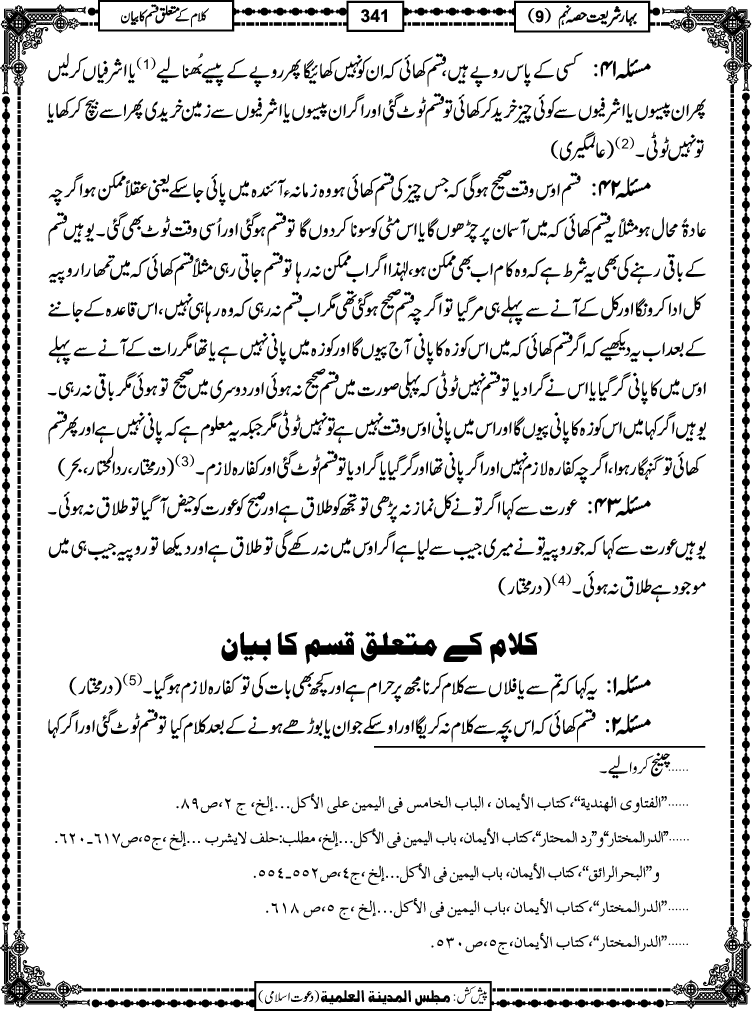 بہارِ شریعت حصہ نہم (9)
341
کلام کے متعلق قسم کا بیان
مسئلہ ۴۱: کسی کے پاس روپے ہیں، قسم کھائی کہ ان کو نہیں کھائیگا پھر روپے کے پیسے بُھنا لیے(1) یا اشرفیاں کرلیں
پھر ان پیسوں یا اشرفیوں سے کوئی چیز خرید کر کھائی تو قسم ٹوٹ گئی اور اگر ان پیسوں یا اشرفیوں سے زمین خریدی پھر اسے بیچ کر کھایا
تو نہیں ٹوٹی۔(2) (عالمگیری)
مسئلہ ۴۲: قسم اوس وقت صحیح ہوگی کہ جس چیز کی قسم کھائی ہو وہ زمانہء آئندہ میں پائی جاسکے یعنی عقلاً ممکن ہو اگرچہ
عادۃً محال ہو مثلاً یہ قسم کھائی کہ میں آسمان پر چڑھوں گا یا اس مٹی کو سونا کردوں گا تو قسم ہوگئی اور اُسی وقت ٹوٹ بھی گئی۔ یوہیں قسم
کے باقی رہنے کی بھی یہ شرط ہے کہ وہ کام اب بھی ممکن ہو، لہٰذا اگر اب ممکن نہ رہا تو قسم جاتی رہی مثلاً قسم کھائی کہ میں تمھارا روپیہ
کل ادا کرونگا اور کل کے آنے سے پہلے ہی مر گیا تو اگرچہ قسم صحیح ہوگئی تھی مگر اب قسم نہ رہی کہ وہ رہا ہی نہیں، اس قاعدہ کے جاننے
کے بعد اب یہ دیکھیے کہ اگر قسم کھائی کہ میں اس کوزہ کا پانی آج پیوں گا اور کوزہ میں پانی نہیں ہے یا تھا مگر رات کے آنے سے پہلے
اوس میں کا پانی گر گیا یا اس نے گرا دیا تو قسم نہیں ٹوٹی کہ پہلی صورت میں قسم صحیح نہ ہوئی اور دوسری میں صحیح تو ہوئی مگر باقی نہ رہی۔
یوہیں اگر کہا میں اس کوزہ کا پانی پیوں گا اور اس میں پانی اوس وقت نہیں ہے تو نہیں ٹوٹی مگر جبکہ یہ معلوم ہے کہ پانی نہیں ہے اور پھر قسم
کھائی تو گنہگار ہوا، اگرچہ کفارہ لازم نہیں اور اگر پانی تھا اور گر گیا یا گرا دیا تو قسم ٹوٹ گئی اور کفارہ لازم۔(3) (درمختار، ردالمحتار، بحر)
مسئلہ ۴۳: عورت سے کہا اگر تو نے کل نماز نہ پڑھی تو تجھ کو طلاق ہے اور صبح کو عورت کو حیض آگیا تو طلاق نہ ہوئی۔
یوہیں عورت سے کہا کہ جو روپیہ تو نے میری جیب سے لیا ہے اگر اوس میں نہ رکھے گی تو طلاق ہے اور دیکھا تو روپیہ جیب ہی میں
موجود ہے طلاق نہ ہوئی۔(4) (درمختار)
کلام کے متعلق قسم کا بیان
مسئلہ ۱: یہ کہا کہ تم سے یا فلاں سے کلام کرنا مجھ پر حرام ہے اور کچھ بھی بات کی تو کفارہ لازم ہوگیا۔(5) (درمختار)
مسئلہ ۲: قسم کھائی کہ اس بچہ سے کلام نہ کریگا اور اوسکے جوان یا بوڑھے ہونے کے بعد کلام کیا تو قسم ٹوٹ گئی اور اگر کہا
......چینج کروالیے۔
......”الفتاوی الھندیة“، کتاب الأیمان ، الباب الخامس فی الیمین علی الأکل...إلخ، ج ۲، ص ۸۹.
......”الدرالمختار“و”رد المحتار“، کتاب الأیمان، باب الیمین فی الأکل...إلخ، مطلب:حلف لایشرب ...إلخ ،ج٥، ص٦١٧۔٦٢٠.
و ”البحرالرائق“، کتاب الأیمان، باب الیمین فی الأکل...إلخ، ج٤، ص٥٥٢۔٥٥٤.
......”الدرالمختار“، کتاب الأیمان ،باب الیمین فی الأکل...إلخ ،ج ٥، ص ٦١٨.
......”الدرالمختار“، کتاب الأیمان، ج٥، ص٥٣٠.
پیش کش: مجلس المدینة العلمیة (دعوت اسلامی)